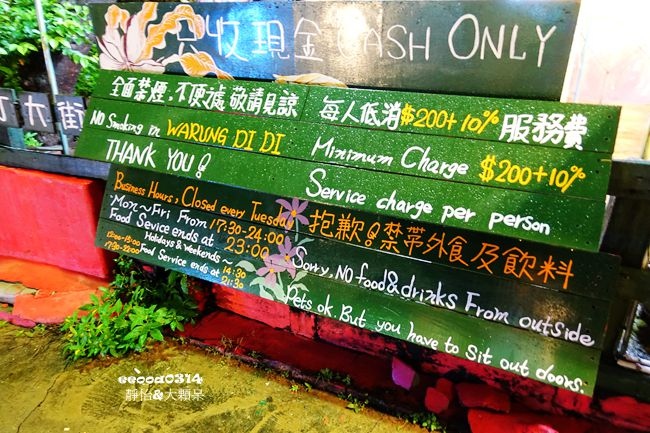 只收現金 CASH ONLY
全面禁煙,不便之處敬請見諒
No Smoking in WARUNG DI DI
THANK YOU!
每人低消$200+10%服務費
Minimum Charge $200+10%
Service charge per person
Business Hours, Closed every Tuesday
Mon~Fri From 17:30-24:00
Food Sevice ends at 23:00
Holidays & Weekends~
12:00-15:00 Food Service ends at 14:30
17:30-22:00 21:30
抱歉!禁帶外食及飲料
Sorry, NO food & drinks From outside
Pets ok. But you have to sit out doors.
大街
eeooa0314
靜怡&大顆呆